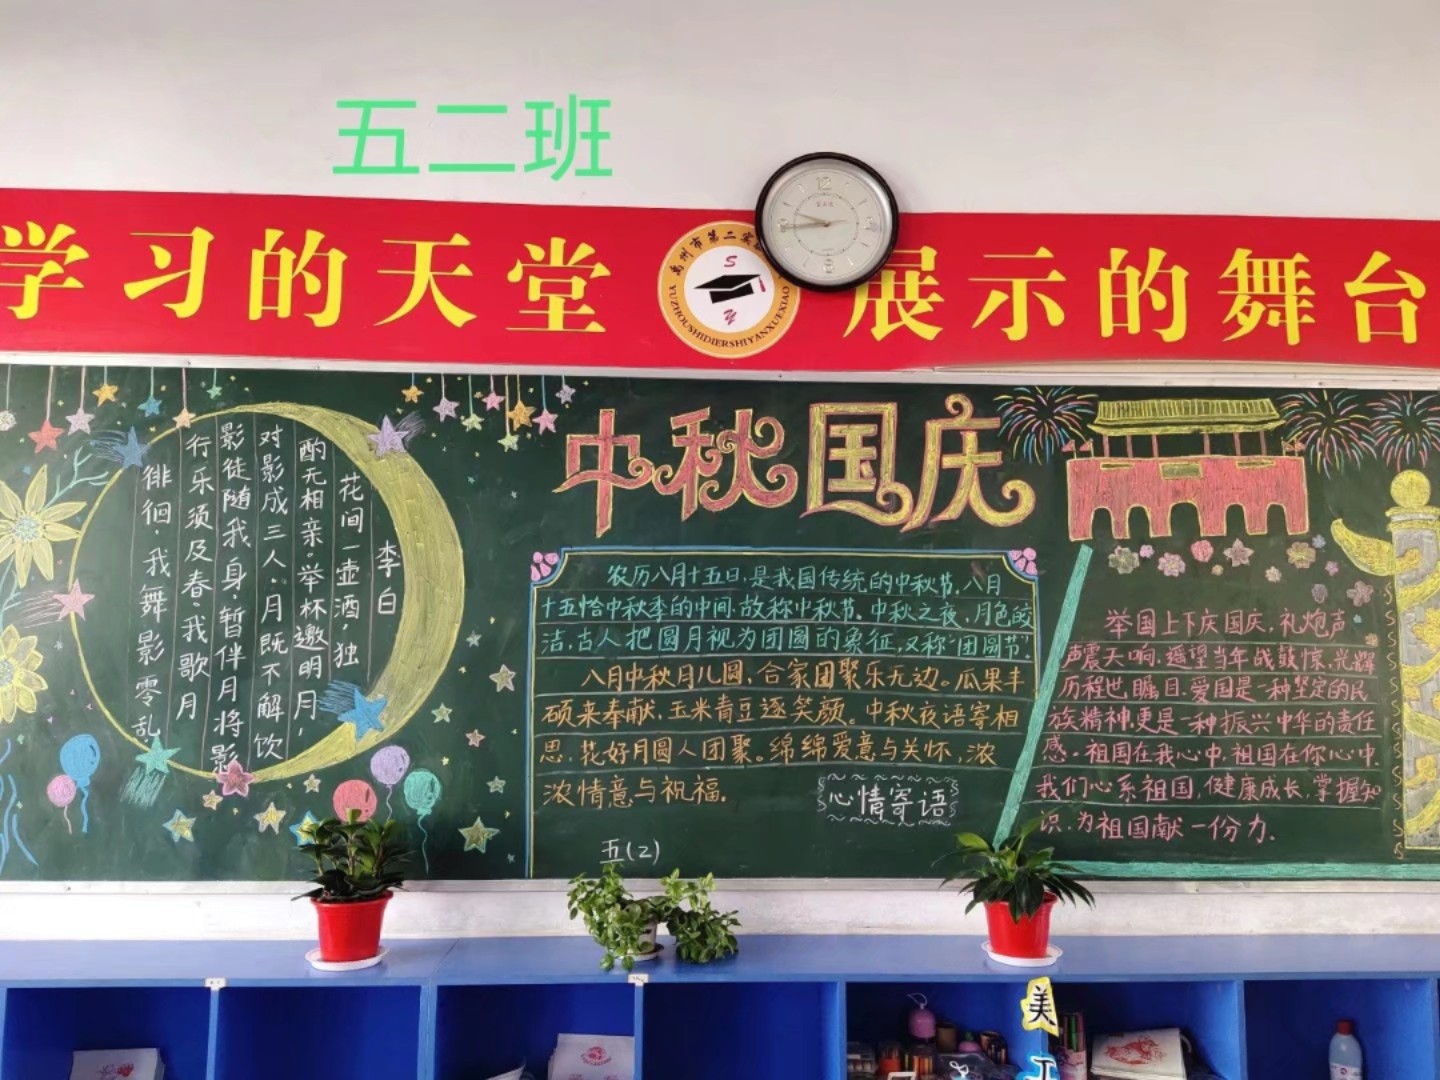 五二班
学习的天堂 展示的舞台
禹州市第二实
YUZHOUSHIDIERSHIYANXUEXIAO
S
Y
12
中秋国庆
李白
花间一壶酒，独
酌无相亲。举杯邀明月，
对影成三人。月既不解饮
影徒随我身。暂伴月将影
行乐须及春。我歌月
徘徊，我舞影零乱
农历八月十五日，是我国传统的中秋节，八月
十五恰中秋季的中间，故称中秋节。中秋之夜，月色皎
洁，古人把圆月视为团圆的象征，又称“团圆节”。
八月中秋月儿圆，合家团聚乐无边。瓜果丰
硕来奉献，玉米青豆逐笑颜。中秋夜语寄相
思，花好月圆人团聚。绵绵爱意与关怀，浓
浓情意与祝福。
心情寄语
五(2)
举国上下庆国庆，礼炮声
声震天响，遥望当年战鼓惊，光辉
历程也瞩目，爱国是一种坚定的民
族精神，更是一种振兴中华的责任
感。祖国在我心中，祖国在你心中，
我们心系祖国，健康成长，掌握知
识，为祖国献一份力。
美
工